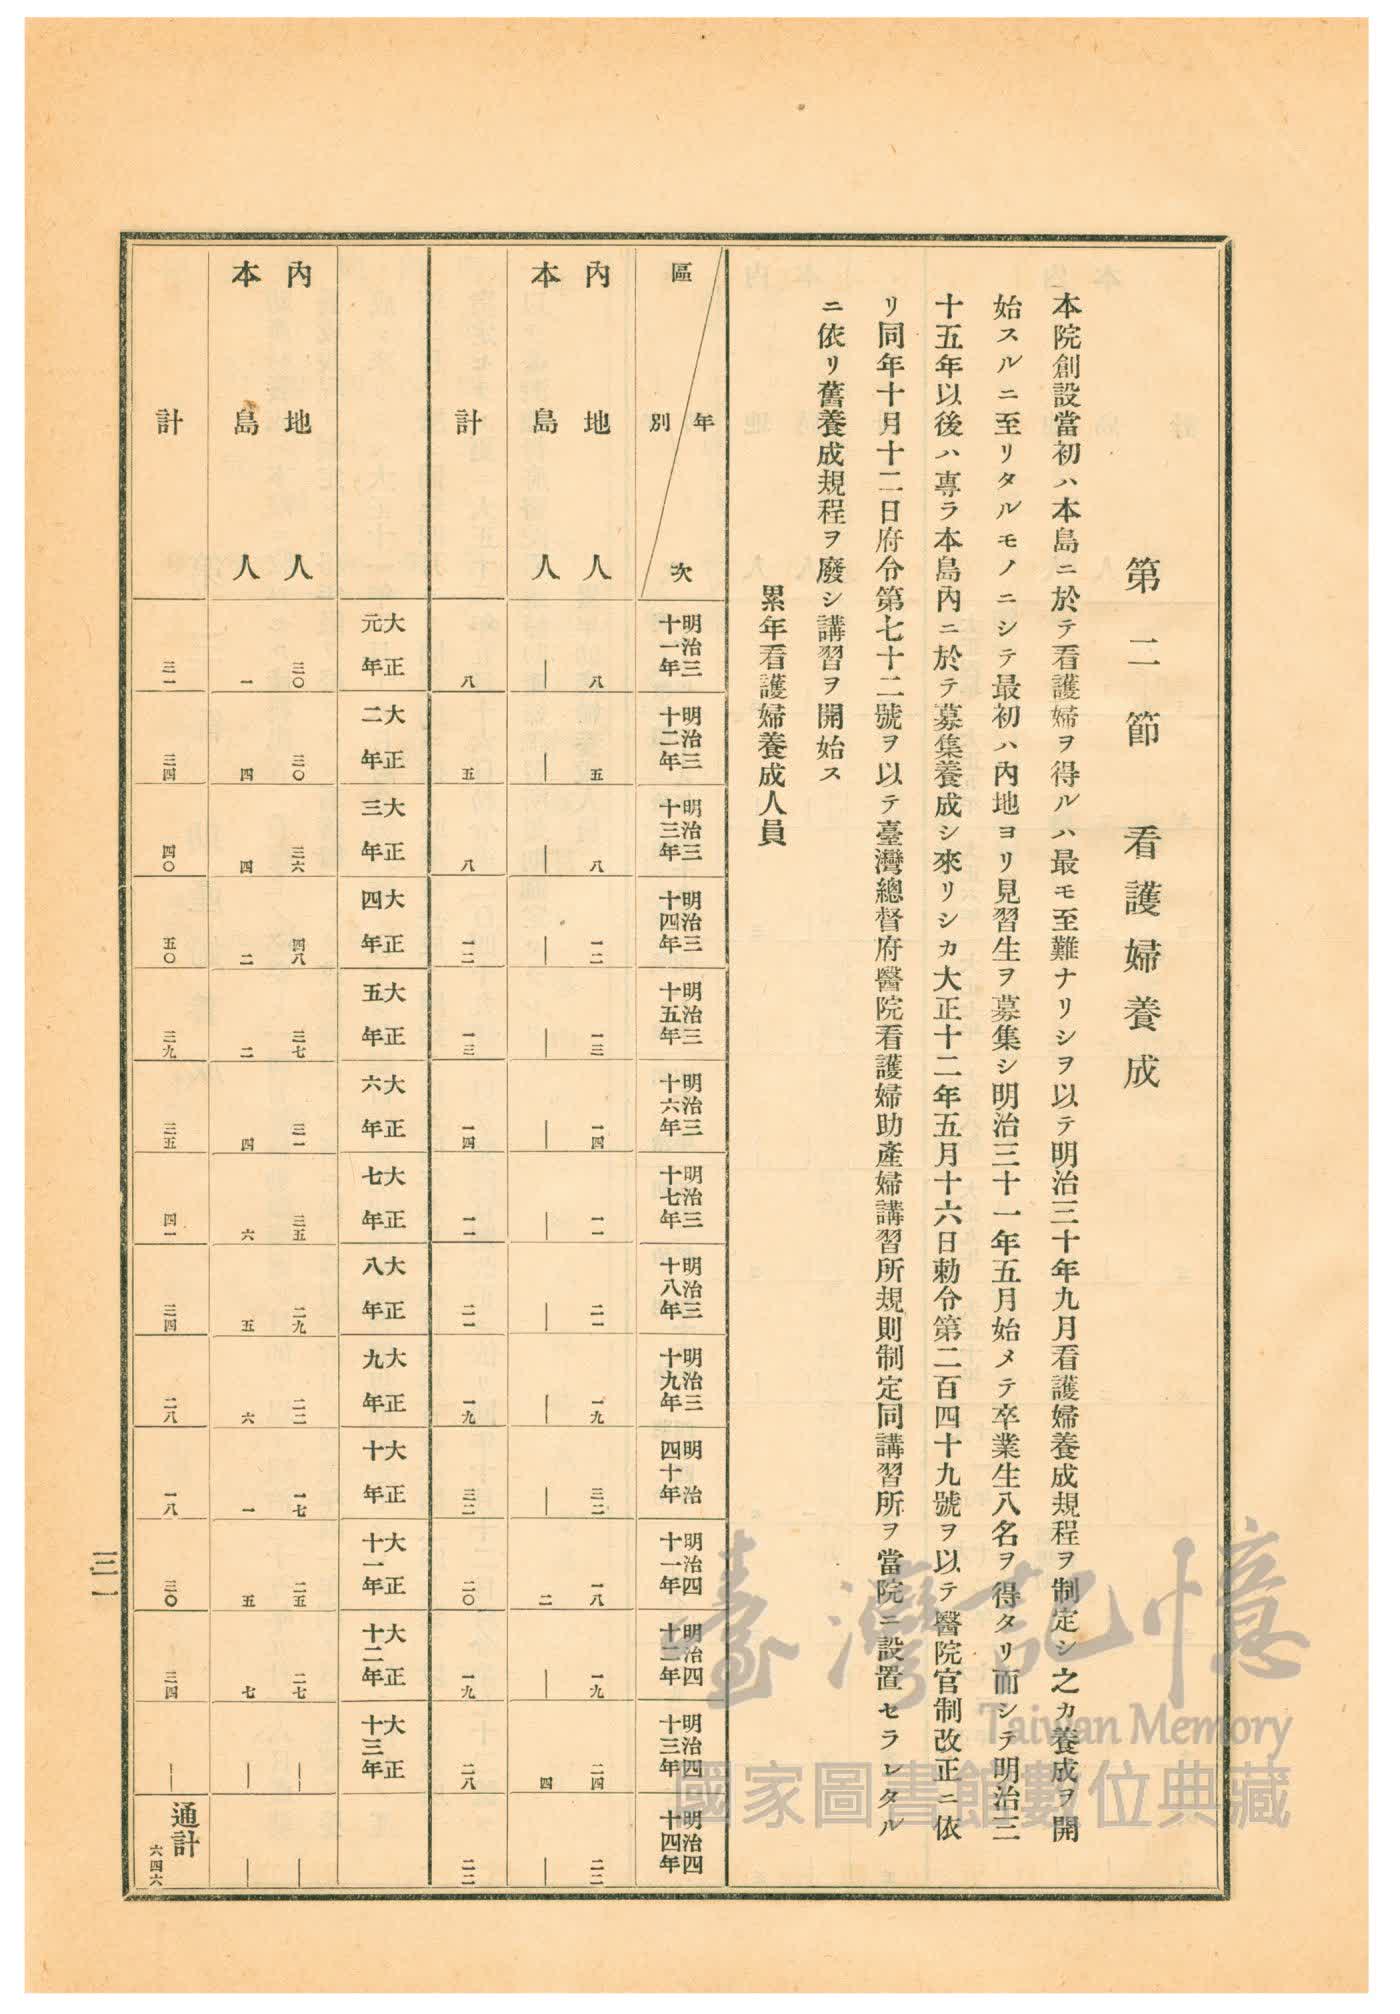 第二節　看護婦養成
本院創設當初ハ本島ニ於テ看護婦ヲ得ルハ最モ至難ナリシヲ以テ明治三十年九月看護婦養成規程ヲ制定シ之カ養成ヲ開
始スルニ至リタルモノニシテ最初ハ內地ヨリ見習生ヲ募集シ明治三十一年五月始メテ卒業生八名ヲ得タリ而シテ明治三
十五年以後ハ專ラ本島內ニ於テ募集養成シ來リシカ大正十二年五月十六日勅令第二百四十九號ヲ以テ醫院官制改正ニ依
リ同年十月十二日府令第七十二號ヲ以テ臺灣總督府醫院看護婦助產婦講習所規則制定同講習所ヲ當院ニ設置セラレタル
ニ依リ舊養成規程ヲ廢シ講習ヲ開始ス
累年看護婦養成人員
區別 年次 明治三十一年 明治三十二年 明治三十三年 明治三十四年 明治三十五年 明治三十六年 明治三十七年 明治三十八年 明治三十九年 明治四十年 明治四十一年 明治四十二年 明治四十三年 明治四十四年
內地人 八 五 八 一二 一三 一四 一一 二一 一九 三二 一八 一九 二四 二二
本島人 — — — — — — — — — — 二 — 四 —
計 八 五 八 一二 一三 一四 一一 二一 一九 三二 二〇 一九 二八 二二
大正元年 大正二年 大正三年 大正四年 大正五年 大正六年 大正七年 大正八年 大正九年 大正十年 大正十一年 大正十二年 大正十三年
內地人 三〇 三〇 三六 四八 三七 三一 三五 二九 二二 一七 二五 二七 — —
本島人 一 四 四 二 二 四 六 五 六 一 五 七 — —
計 三一 三四 四〇 五〇 三九 三五 四一 三四 二八 一八 三〇 三四 — 通計 六四六
三一
臺灣記憶
Taiwan Memory
國家圖書館數位典藏